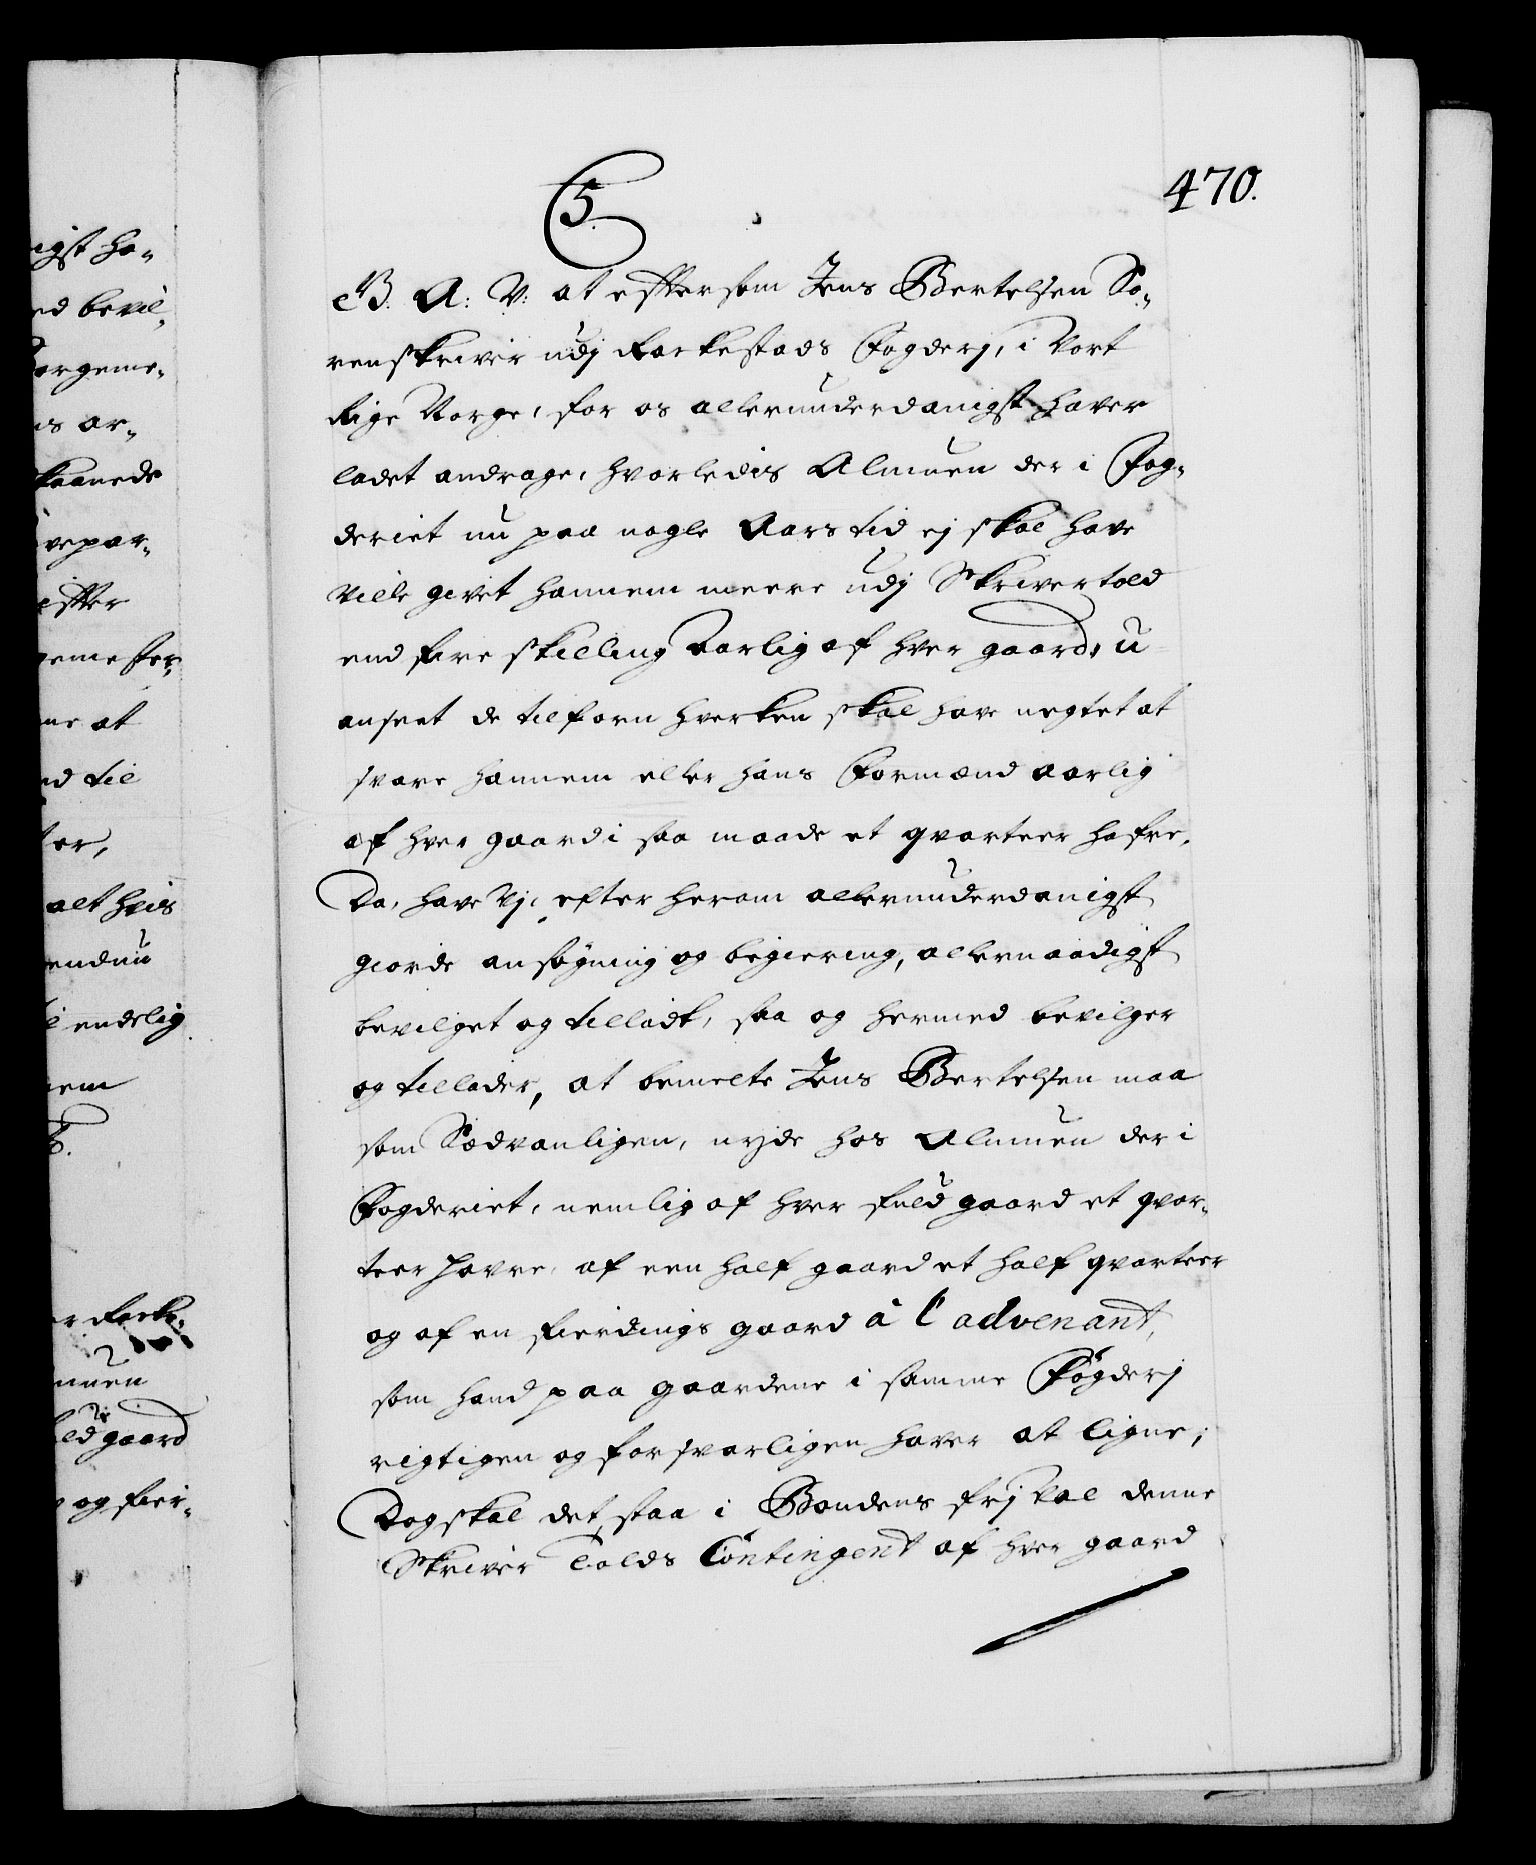 470.
5.
G. A: V: at eftersom Jens Bertelsen So-
renskriver udj Rackestads Fogderj, i Vort
Rige Norge, for os allerunderdanigst haver
ladet andrage, hvorledis Almuen der i Fog-
deriet nu paa nogle Aars tid ej skal have
villet givet hannem meere udj Skrivertold
end fire skilling Aarlig af hver gaard, u-
anseet de tilforn hverken skal have negtet at
svare hannem eller hans Formænd aarlig
af hver gaard i saa maade et qvarteer hafre,
Da, have Vj, efter herom allerunderdanigst
giorde ansøgning og begiering, allernaadigst
bevilget og tilladt, saa og hermed bevilger
og tillader, at bemelte Jens Bertelsen maa
som Sædvanligen, nyde hos Almuen der i
Fogderiet, nemlig af hver fuld gaard et qvar-
teer Havre, af een half gaard et half qvarteer
og af en fierdings gaard à l'advenant,
som hand paa gaardene i samme Fogderj
rigtigen og forsvarligen haver at ligne;
Dog skal det staa i Bondens frj val denne
Skriver Tolds Contingent af hver gaard
igst ha-
ed bevil-
orgeme-
is ar-
kaanede
vepar-
effter
geme for-
me at
nd til
er,
alt hvis
endnu
endelig
nem
r Racke-
muen
uld gaard
og fier-